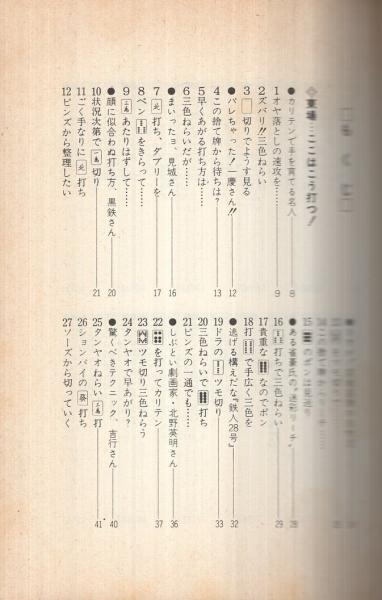 もくじ
◇東場…ここはこう打つ！
●カリテンで手を育てる名人 8
1 オヤ落としの速攻を…… 9
2 ズバリ!!三色ねらい
3 切りでようす見る
●バレちゃった！一慶さん!! 12
4 この捨て牌から待ちは？ 13
5 早くあがる打ち方は……
6 三色ねらいだが……
●まいったョ、見城さん 16
7 北 打ち、ダブリーを 17
8 ペン をきらって……
9 あたりはずして……
●顔に似合わぬ打ち方、黒鉄さん 20
10 状況次第で 切り 21
11 ごく手なりに 北 打ち
12 ピンズから整理したい
15 のポンは見送り
●ある雀豪氏の〝迷彩リーチ〟 28
16 打ちで三色ねらい 29
17 貴重な なのでポン
18 打 で手広く三色を
●逃げる構えだな『鉄人28号』 32
19 ドラの ツモ切り 33
20 三色ねらいで 打ち
21 ピンズの一通でも……
●しぶとい劇画家・北野英明さん 36
22 を打ってカリテン 37
23 ツモ切り三色ねらう
24 タンヤオで早あがり？
●驚くべきテクニック、吉行さん 40
25 タンヤオねらい 打 41
26 ションパイの 發 打ち
27 ソーズから切っていく